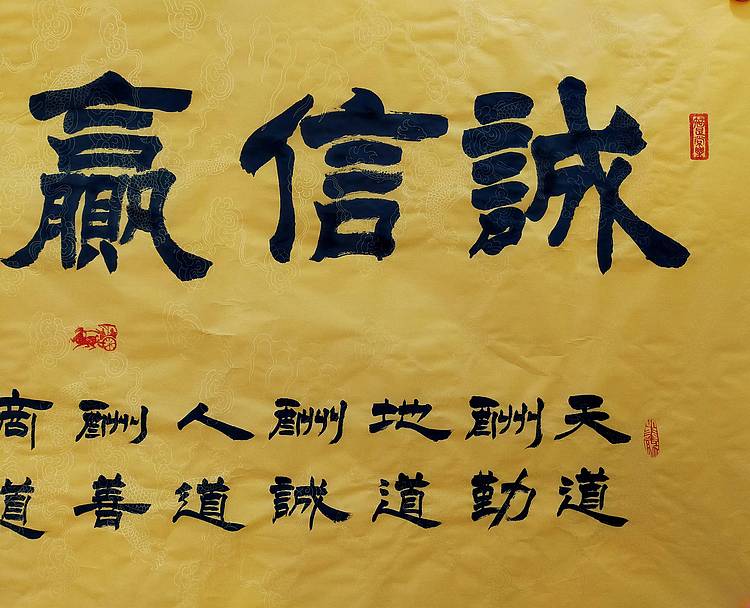 誠信贏
天道
酬勤
地道
酬誠
人道
酬善
商道